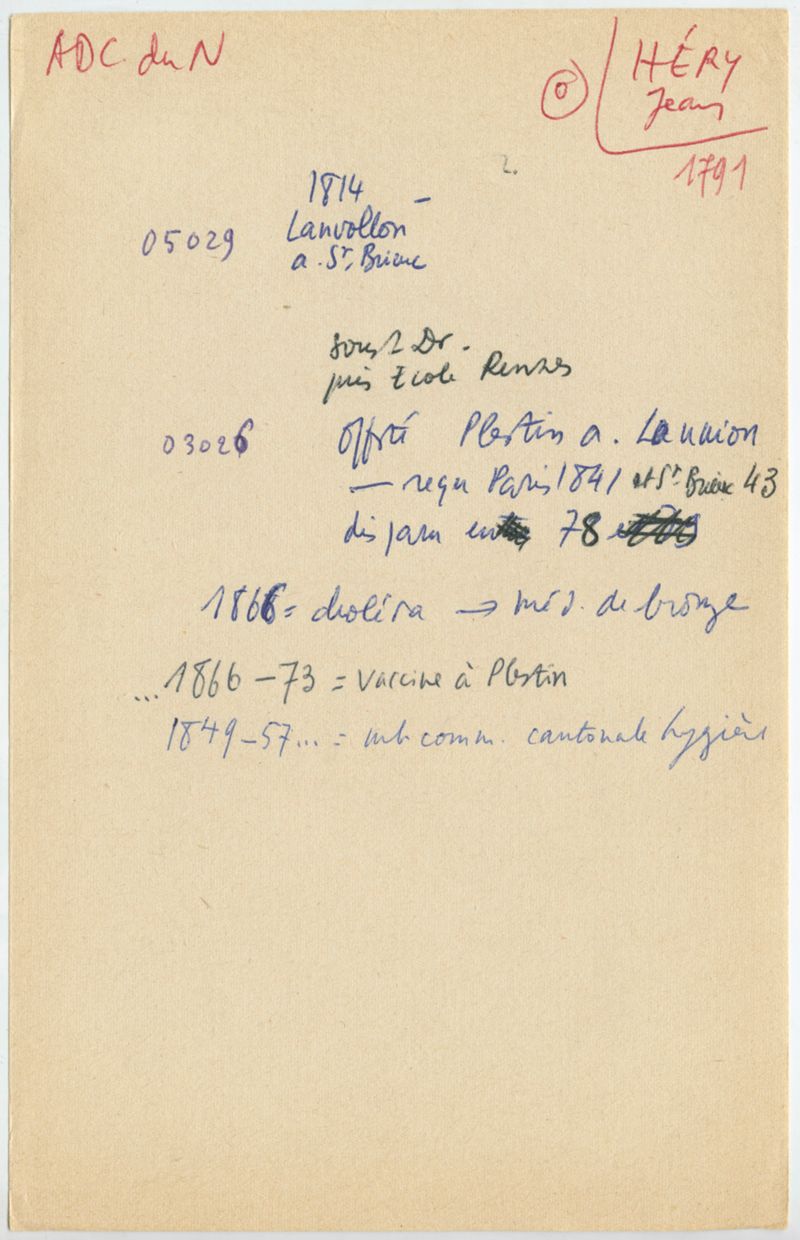 ADC. du N
O HÉRY
Jean
1791
2.
1814 -
05029 Lanvollon
a. St. Brieuc
Dr.
puis Ecole Rennes
03026 Offsté Plestin a. Lannion
— reçu Paris 1841 et St Brieuc 43
disparu 78
1866 = choléra → méd. de bronze
... 1866 - 73 = vaccine à Plestin
1849 - 57... = mb comm. cantonale hygiène